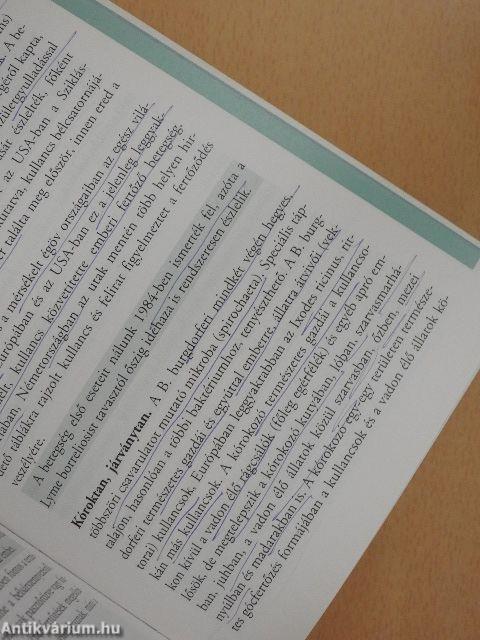 . A be-
géről kapta,
ízületgyulladással
sát észlelték, főként
az USA-ban a Sziklás-
kullancs bélcsatornájá-
találta meg először, innen ered a
a mérsékelt égöv országaiban az egész vilá-
Európában és az USA-ban ez a jelenleg leggyak-
kullancs közvetítette emberi fertőző betegség.
Németországban az utak mentén több helyen hir-
tető táblákra rajzolt kullancs és felirat figyelmeztet a fertőződés
veszélyére.
A betegség első eseteit nálunk 1984-ben ismerték fel, azóta a
Lyme borreliosist tavasztól őszig idehaza is rendszeresen észlelik.
Kóroktan, járványtan. A B. burgdorferi mindkét végén hegyes,
többszöri csavarulatot mutató mikroba (spirochaeta). Speciális táp-
talajon, hasonlóan a többi baktériumhoz, tenyészthető. A B. burg-
dorferi természetes gazdái és egyúttal emberre, állatra átvivői (vek-
torai) kullancsok, Európában leggyakrabban az Ixodes ricinus, rit-
kán más kullancsok. A kórokozó természetes gazdái a kullancso-
kon kívül a vadon élő rágcsálók (főleg egérfélék) és egyéb apró em-
lősök, de megtelepszik a kórokozó kutyában, lóban, szarvasmarhá-
ban, juhban, a vadon élő állatok közül szarvasban, őzben, mezei
nyúlban és madarakban is. A kórokozó egy-egy területen természe-
tes gócfertőzés formájában a kullancsok és a vadon élő állatok kö-
Antikvárium.hu